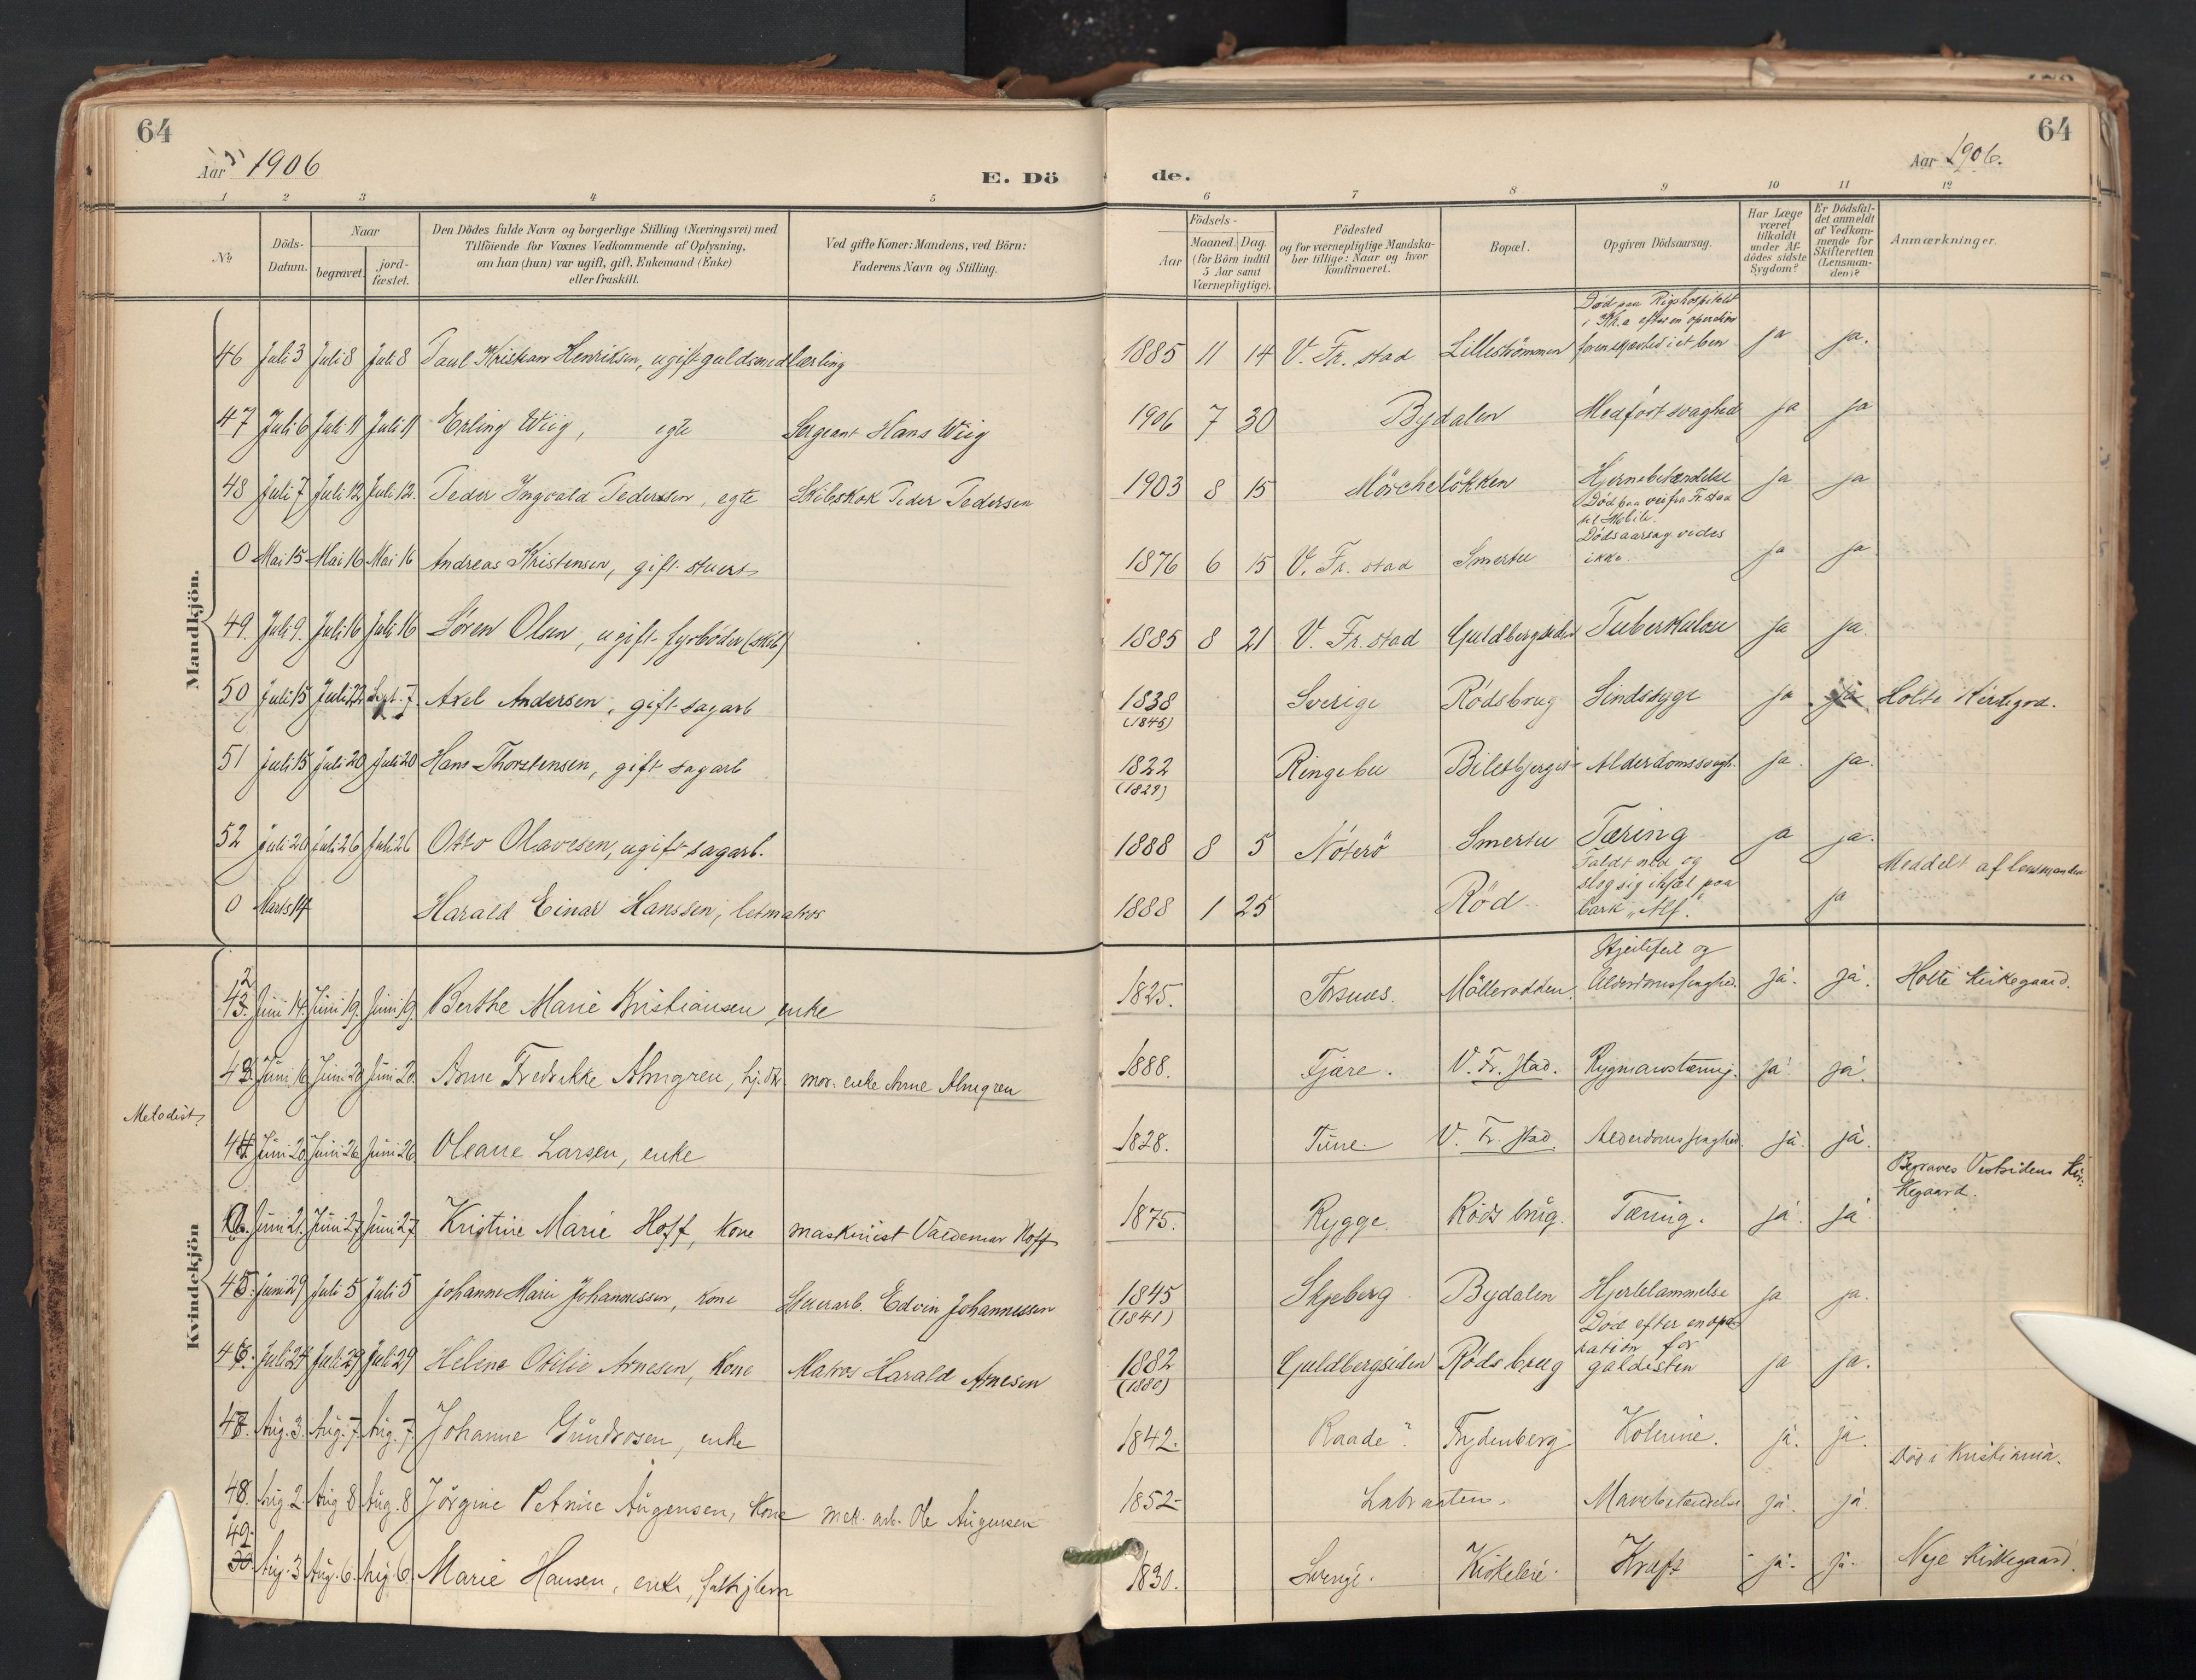 64
64
Aar 1906
E. Dö
de.
Aar 1906.
1 2 3 4 5 6 7 8 9 10 11 12
No
Döds-
Datum.
Naar
begravet.
jord-
fæstet.
Den Dödes fulde Navn og borgerlige Stilling (Næringsvei) med
Tilföiende for Voxnes Vedkommende af Oplysning,
om han (hun) var ugift, gift, Enkemand (Enke)
eller fraskilt.
Ved gifte Koner: Mandens, ved Börn:
Faderens Navn og Stilling.
Födsels-
Aar
Maaned. Dag.
(for Börn indtil
5 Aar samt
Værnepligtige).
Födested
og for værnepligtige Mandska-
ber tillige: Naar og hvor
konfirmeret.
Bopæl.
Opgiven Dödsaarsag.
Har Læge
været
tilkaldt
under Af-
dödes sidste
Sygdom?
Er Dödsfal-
det anmeldt
af Vedkom-
mende for
Skifteretten
(Lensman-
den)?
Anmærkninger.
Mandkjön.
Död paa Rigshospitalet
i Kr.a efter en operation
46 Juli 3 Juli 8 Juli 8 Paul Kristian Henriksen, ugift guldsmedlærling 1885 11 14 V. Fr. stad Lillestrømmen for en skjævhed i et ben ja ja.
47 Juli 6 Juli 11 Juli 11 Erling Wiig, egte Sergeant Hans Wiig 1906 7 30 Bydalen Medfört svaghed ja ja
48 Juli 7 Juli 12 Juli 12. Peder Ingvald Pedersen, egte Skibskok Peder Pedersen 1903 8 15 Mörchelökken Hjernebetændelse ja ja
Död paa vei fra Fr.stad
til Mobile.
Dödsaarsag vides
0 Mai 15 Mai 16 Mai 16 Andreas Kristensen, gift stuert 1876 6 15 V. Fr. stad Smertu ikke. ja ja
49. Juli 9. Juli 16 Juli 16 Sören Olsen, ugift fyrböder (skib) 1885 8 21 V. Fr. stad Guldbergsiden Tuberkulose ja ja.
50 Juli 15 Juli 22 Sept. 7. Axel Andersen, gift sagarb 1838 Sverige Rödsbrug Sindssyge ja ja Holte Kirkegrd.
(1845)
51 Juli 15 Juli 20 Juli 20 Hans Thorstensen, gift sagarb 1822 Ringebu Alderdomssvagh. ja. ja.
(1829)
52 Juli 20 Juli 26 Juli 26 Otto Olavesen, ugift sagarb. 1888 8 5 Nöterö Smertu Tæring ja ja.
Faldt ned og
slog sig ihjæl paa
Meddelt af lensmanden
0 Marts 14 Harald Einar Hanssen, letmatros 1888 1 25 Röd bark "Alf". ja
Kvindekjön
Hjertefeil og
42 Juni 14. Juni 19. Juni 19. Berthe Marie Kristiansen enke 1825. Torsnes. Möllerodden. Alderdomssvaghed. ja. ja. Holte Kirkegaard.
43. Juni 16 Juni 20 Juni 20. Anne Fredrikke Almgren, hj. dtr mor. enke Anne Almgren 1888. Tjære. V. Fr. stad. Rygmarvstæring. ja ja.
Metodist,
44 Juni 20 Juni 26 Juni 26. Oleane Larsen, enke 1828. Tune. V. Fr. stad. Alderdomssvaghed. ja. ja.
Begraves Vestsidens Kir-
kegaard.
Juni 21. Juni 27 Juni 27 Kristine Marie Hoff, kone maskinist Valdemar Hoff 1875. Rygge. Röds brug. Tæring. ja. ja
45. Juni 29 Juli 5 Juli 5 Johanne Marie Johannessen, kone Stuerarb. Edvin Johannessen 1845 Skjeberg Bydalen Hjertelammelse ja ja.
(1841)
Död efter en ope-
ration for
46. Juli 24 Juli 29 Juli 29 Helene Otilie Arnesen, kone Matros Harald Arnesen 1882 Guldbergsiden Röds brug galdesten ja ja.
(1880)
47. Aug. 3. Aug. 7. Aug. 7. Johanne Gundrosen, enke 1842. Raade? Frydenberg Kolerine. ja. ja.
Död i Kristiania.
48. Aug. 2. Aug 8 Aug. 8 Jörgine Petrine Augensen, kone mek. arb. Ole Augensen 1852 Labraaten. Mavebetændelse ja. ja.
49.
50 Aug. 3 Aug. 6. Aug. 6. Marie Hansen, enke, fattighjem 1830. Sverige. Kirkeleie. Kræft ja. ja. Nye Kirkegaard.